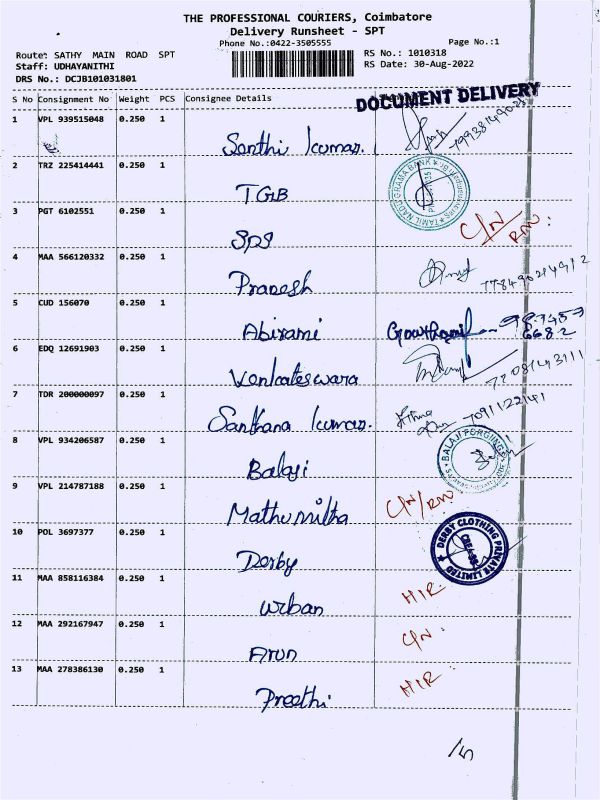 THE PROFESSIONAL COURIERS, Coimbatore
Delivery Runsheet - SPT
Phone No.:0422-3505555
Page No.:1
Route: SATHY MAIN ROAD SPT
RS No.: 1010318
Staff: UDHAYANITHI
RS Date: 30-Aug-2022
DRS No.: DCJB101031801
S No Consignment No Weight PCS Consignee Details
DOCUMENT DELIVERY
1 VPL 939515048 0.250 1
Santhi kumar.
2 TRZ 225414441 0.250 1
TGB
TAMIL NADU GRAMA BANK
3 PGT 6102551 0.250 1
SPS
C/N/RN:
4 MAA 566120332 0.250 1
Pranesh
5 CUD 156070 0.250 1
Abirami
6 EDQ 12691903 0.250 1
Venkateswara
7 TDR 200000097 0.250 1
Santhana kumar.
7091122141
8 VPL 934206587 0.250 1
Balaji
BALAJI FORGINGS
9 VPL 214787188 0.250 1
Mathumitha
C/N/RN:
10 POL 3697377 0.250 1
Derby
DERBY CLOTHING PRIVATE LIMITED
11 MAA 858116384 0.250 1
Urban
HIR
12 MAA 292167947 0.250 1
Arun
C/N:
13 MAA 278386130 0.250 1
Preethi
HIR: